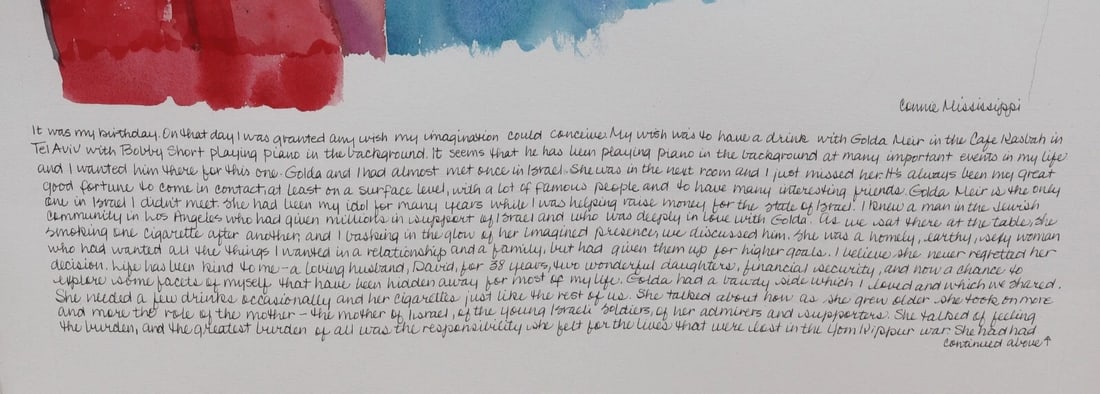 Connie Mississippi
It was my birthday. On that day I was granted any wish my imagination could conceive. My wish was to have a drink with Golda Meir in the Cafe Kasbah in
Tel Aviv with Bobby Short playing piano in the background. It seems that he has been playing piano in the background at many important events in my life
and I wanted him there for this one. Golda and I had almost met once in Israel. She was in the next room and I just missed her. It's always been my great
good fortune to come in contact, at least on a surface level, with a lot of famous people and to have many interesting friends. Golda Meir is the only
one in Israel I didn't meet. She had been my idol for many years while I was helping raise money for the State of Israel. I knew a man in the Jewish
community in Los Angeles who had given millions in support of Israel and who was deeply in love with Golda. As we sat there at the table, she
smoking one cigarette after another, and I basking in the glow of her imagined presence, we discussed him. She was a homely, earthy, sexy woman
who had wanted all the things I wanted in a relationship and a family, but had given them up for higher goals. I believe she never regretted her
decision. Life has been kind to me - a loving husband, David, for 38 years, two wonderful daughters, financial security, and now a chance to
explore some facets of myself that have been hidden away for most of my life. Golda had a bawdy side which I loved and which we shared.
She needed a few drinks occasionally and her cigarettes just like the rest of us. She talked about how as she grew older she took on more
and more the role of the mother - the mother of Israel, of the young Israeli soldiers, of her admirers and supporters. She talked of feeling
the burden, and the greatest burden of all was the responsibility she felt for the lives that were lost in the Yom Kippur war. She had had
continued above ↑